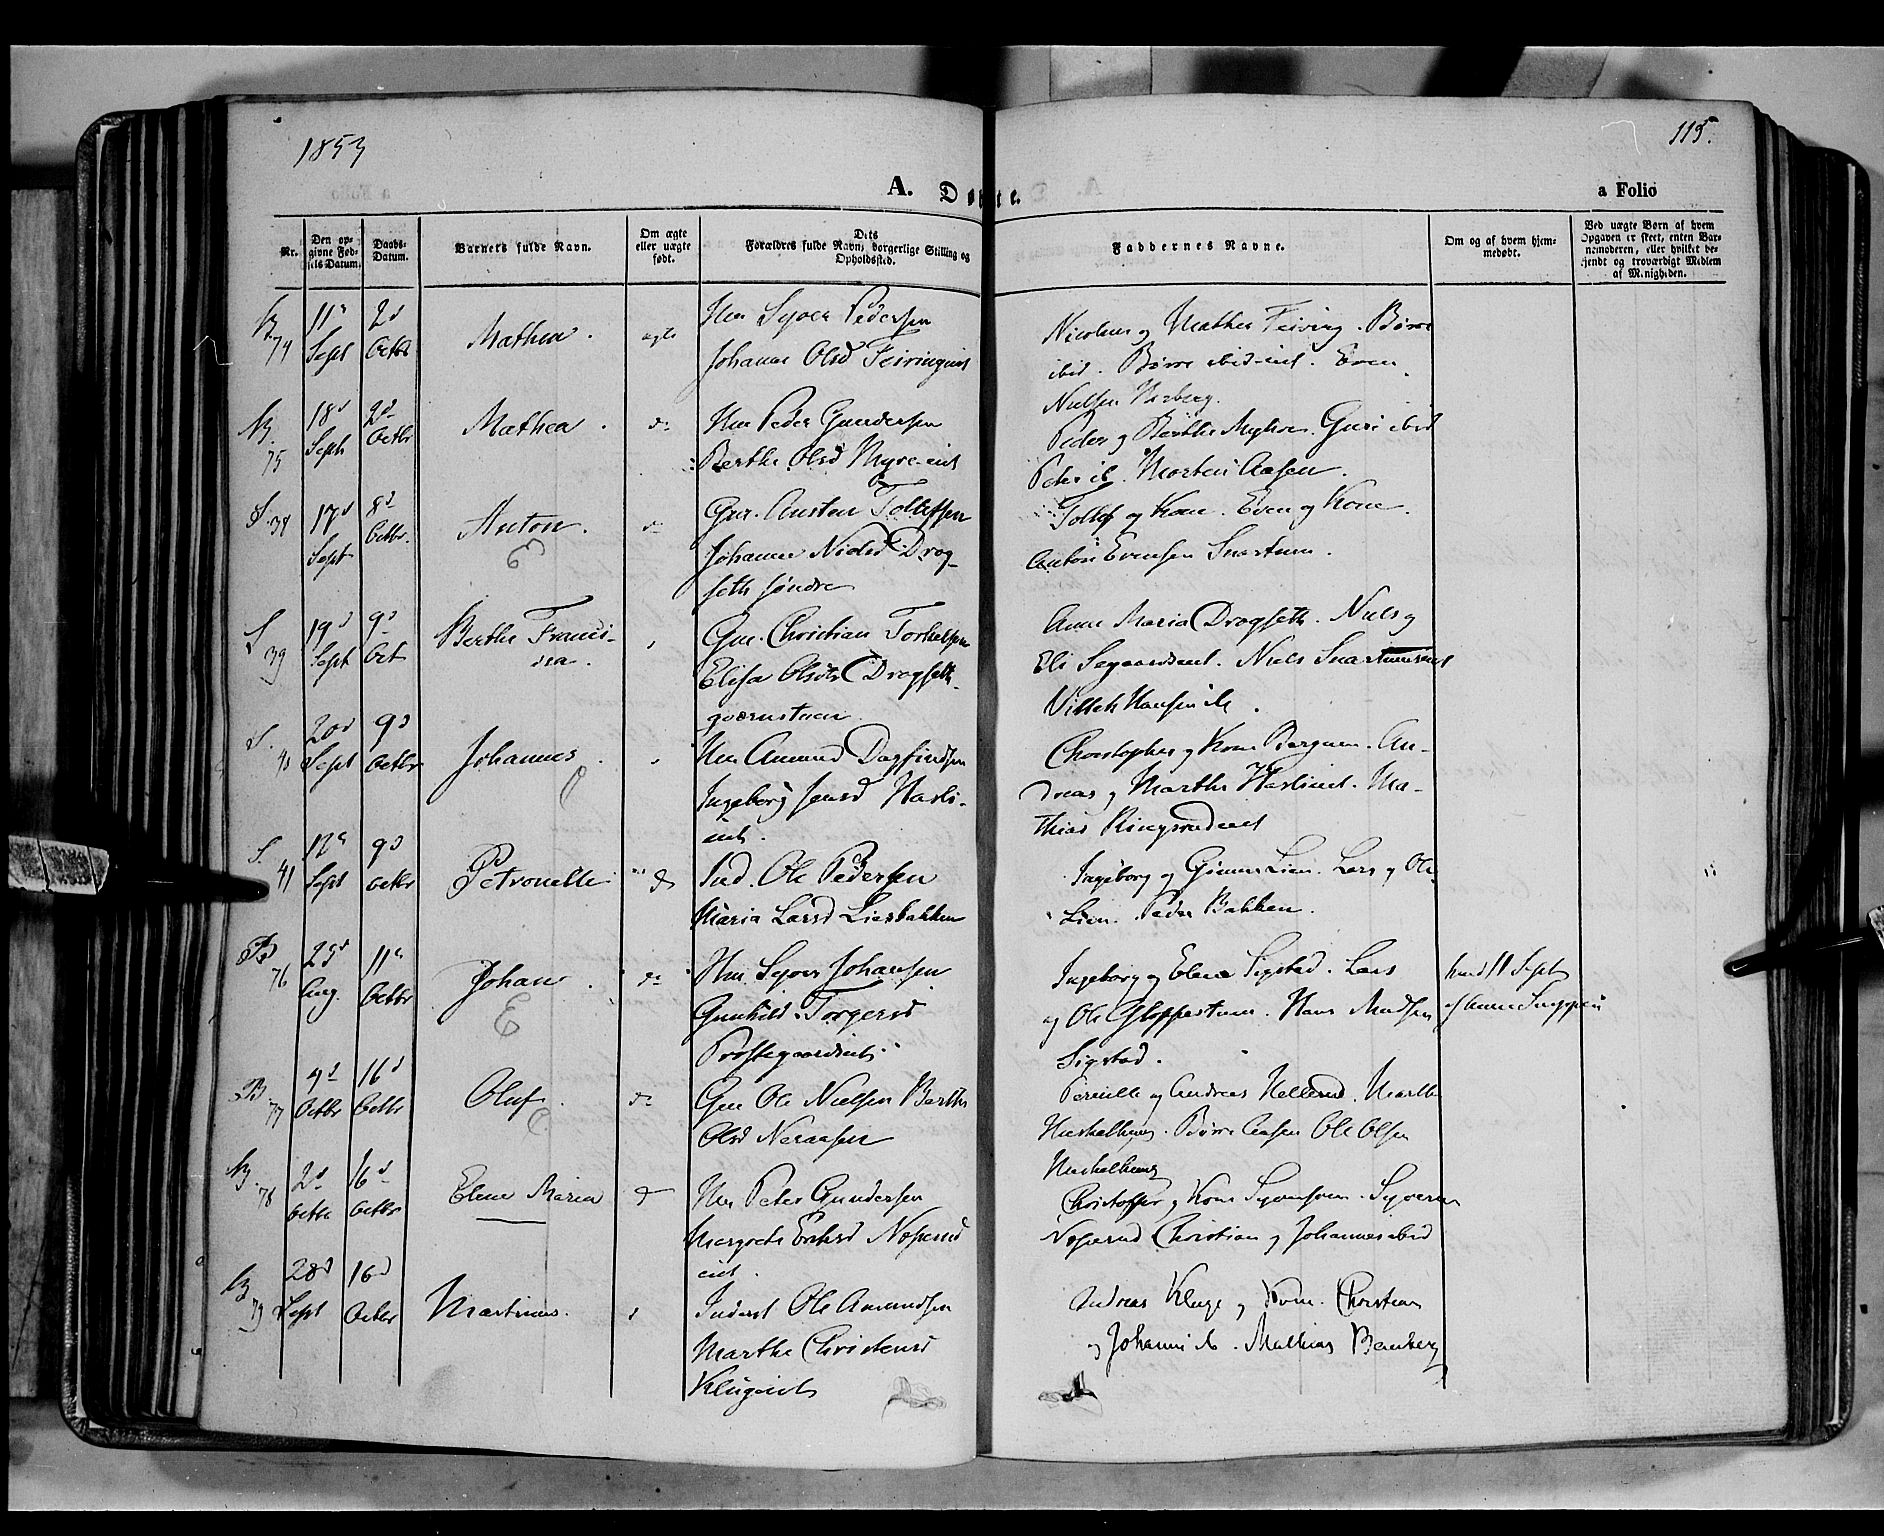 1853
115.
A. Døbte.
a Folio
Nr.
Den opgivne Fødsels Datum.
Daabs-Datum.
Barnets fulde Navn.
Om ægte eller uægte født.
Dets Forældres fulde Navn, borgerlige Stilling og Opholdssted.
Faddernes Navne.
Om og af hvem hjemmedøbt.
Ved uægte Børn af hvem Opgaven er skeet, enten Barnemoderen, eller hvilket bekjendt og troværdigt Medlem af Menigheden.
74
11
Sept
2d
Octbr
Mathea.
ægte
Hm Syver Pedersen
Johanne Olsd Feiringeiet
Nicolaus og Mathea Feiring. Børre
ibid. Børre ibid-eiet. Even
Nielsen
75
18d
Sept
2d
Octbr
Mathea.
do
Hm Peder Gundersen
Berthe Olsd Myre-eiet
Peder og Berthe Myhre. Guri ibid
Peter ib. Morten Aasen.
S. 38
17d
Sept
8d
Octbr.
Anton.
E
Gm. Austen Tollefsen
Johanne Nielsd Drog-
seth søndre
Tollef og Kone. Even og Kone.
Anton Evensen Snartum.
S 39
19d
Sept
9d
Oct
Berthe Franci-
sca.
Gm. Christian Torkelsen
Elisa Olsdtr Drogseth
qværnstuen
Anne Maria Drogseth. Niels og
Eli Søgaardseiet. Niels Snartumseiet
Hansen ib.
S.
20d
Sept
9d
Octbr
Johannes
Hm Amund Dagfindsen
Ingeborg Jensd Hasli-
eiet.
Christopher og Kone Bergum. An-
dreas og Marthe Haslieiet. Ma-
thias Ringsrudeiet
S. 41
12
Sept
9d
Octbr
Petronelle
Ind. Ole Pedersen
Maria Larsd Liesbakken
Ingeborg og Gunner Lien. Lars og Ole
Lien. Peder Bakken.
B 76
25d
Aug.
11
Octbr
Johan.
E
do
Hm Syver Johansen
Gunhild Torgersd
Prestegaardseiet
Ingeborg og Elene Sigstad. Lars
og Ole Gloppestuen. Hans Madsen
Sigstad.
11 Sept
af Anne
B 77
4d
Octbr
16d
Octbr
Oluf.
do
Gm Ole Nielsen Berthe
Olsd Neraasen
Pernille og Andreas Hellerud. Marthe
Huskelhaug. Børre Aasen Ole Olsen
Huskelhaug
78
2d
Octbr
16d
Octbr
Elene Maria
Hm Peter Gundersen
Margrethe Eriksd Noserud
eiet.
Christoffer og Kone. Syver
Noserud Christian og Johannes ibid
79
28d
Sept
16d
Octbr
Martinus.
Inderst Ole Amundsen
Marthe Christensd
Klugeiet
Andreas Kluge og Kone. Christian
og Johanne ib. Mathias